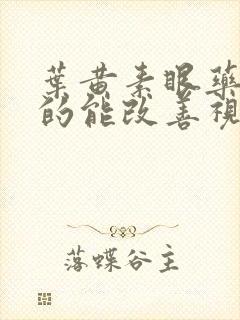 葉黄素眼藥
的能改善視
落蝶谷主